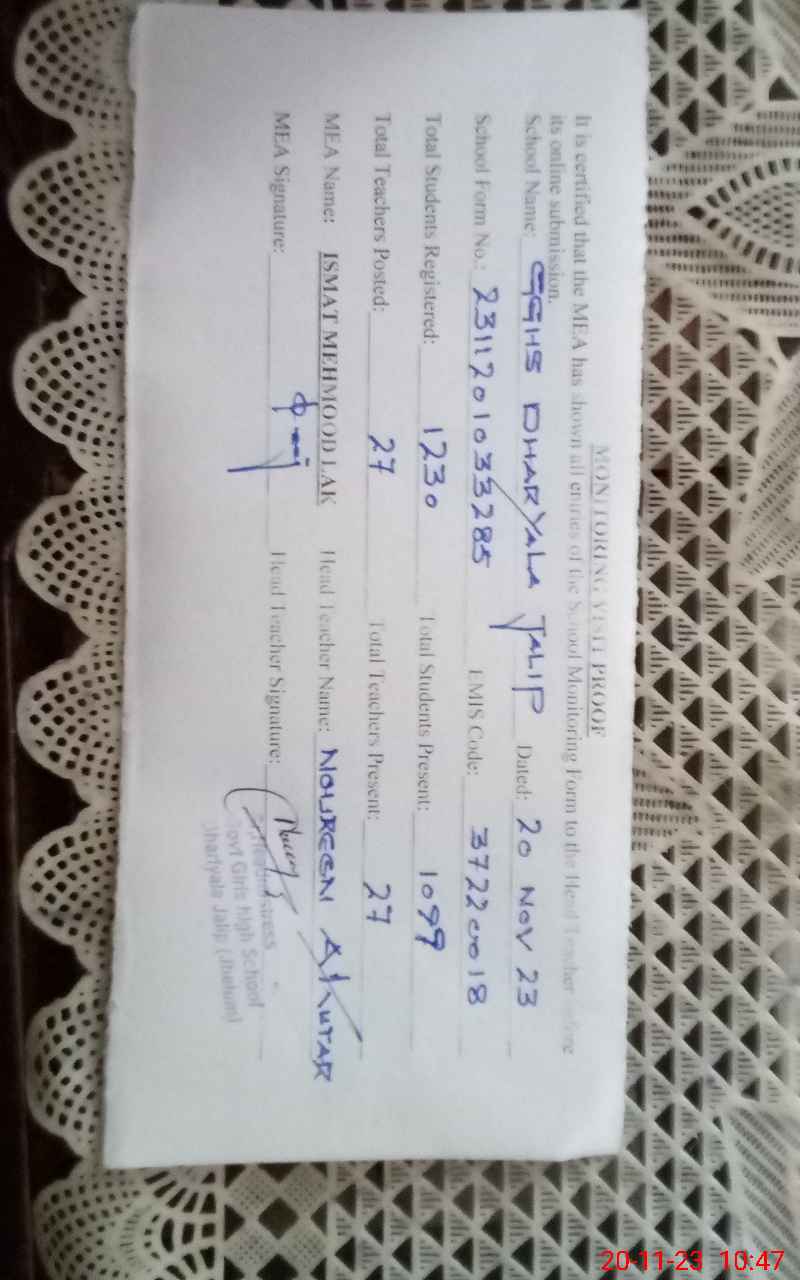 MONITORING VISIT PROOF
It is certified that the MEA has shown all entries of the School Monitoring Form to the Head Teacher before
its online submission.
School Name: GGHS DHARYALA JALIP Dated: 20 NOV 23
School Form No.: 2311201033285 EMIS Code: 37220018
Total Students Registered: 1230 Total Students Present: 1099
Total Teachers Posted: 27 Total Teachers Present: 27
MEA Name: ISMAT MEHMOOD LAK Head Teacher Name: NOUREEN AKHTAR
MEA Signature: Head Teacher Signature:
Govt Girls High School
Dharyala Jalip (Jhelum)
20-11-23 10:47